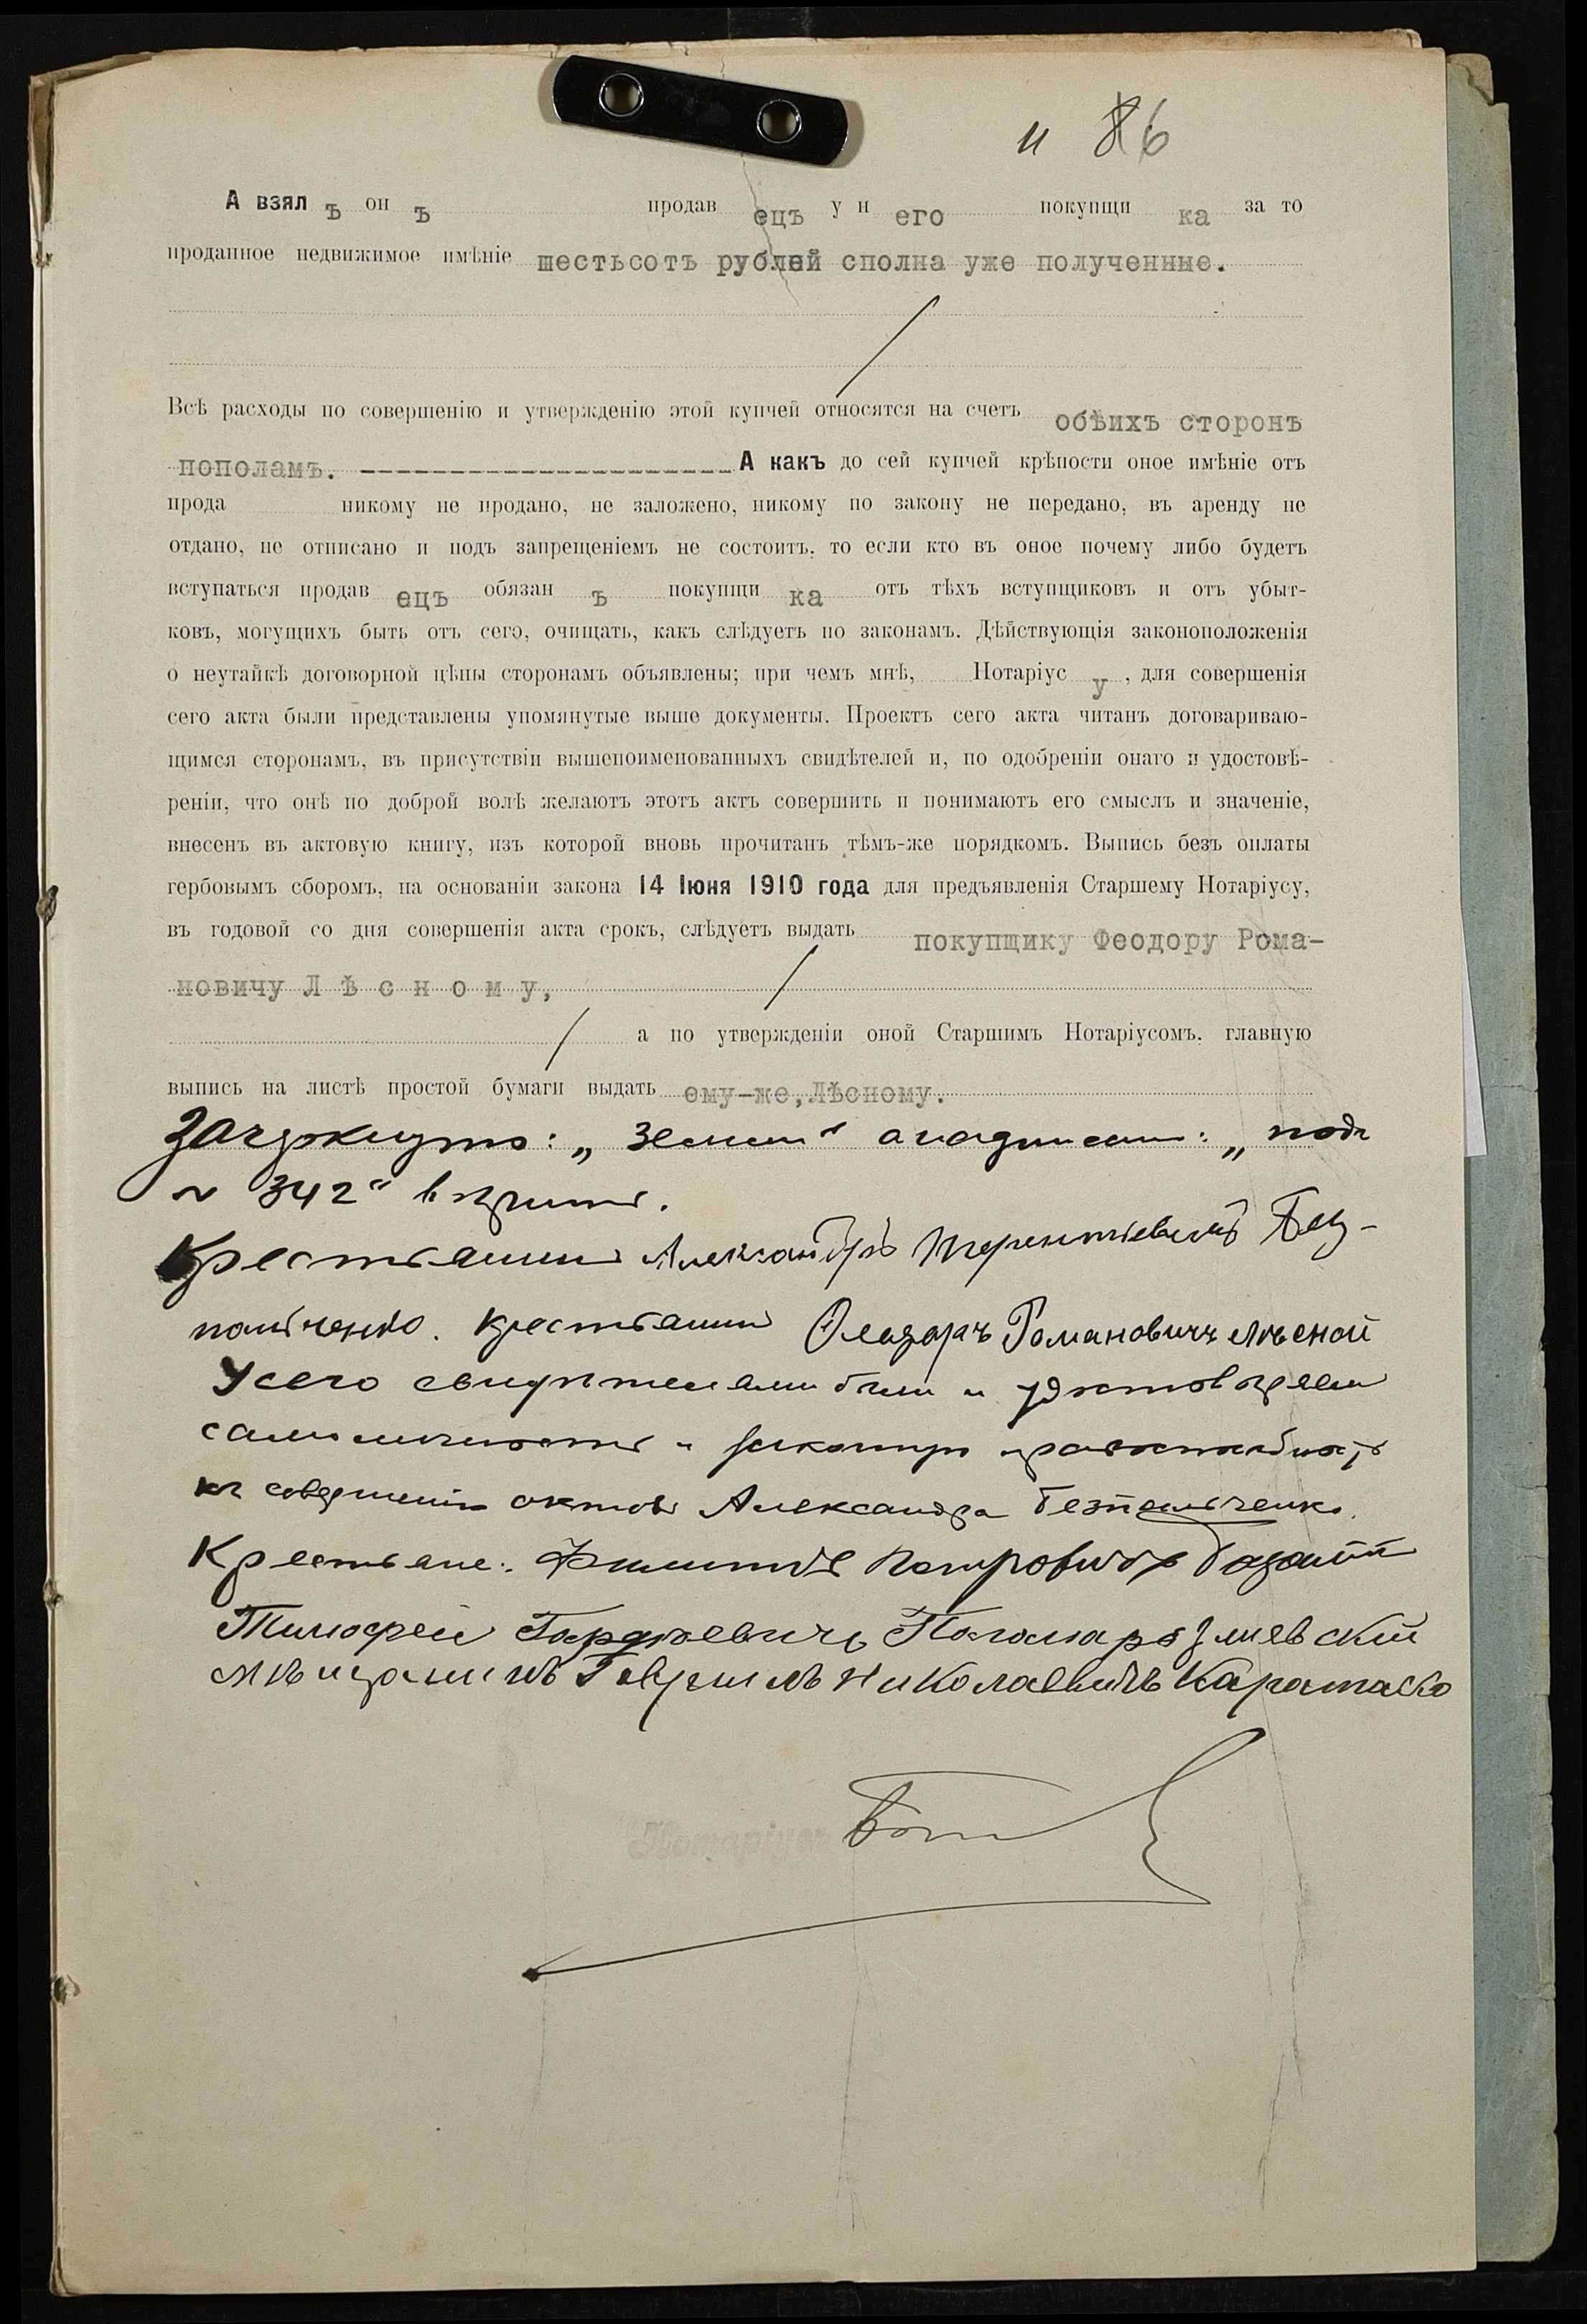 и 86
А взял ъ он ъ продав ецъ у н его покупщи ка за то
проданное недвижимое имѣніе шестьсотъ рублей сполна уже полученные.
Всѣ расходы по совершенію и утвержденію этой купчей относятся на счетъ обѣихъ сторонъ
пополамъ. А какъ до сей купчей крѣпости оное имѣніе отъ
прода никому не продано, не заложено, никому по закону не передано, въ аренду не
отдано, не отписано и подъ запрещеніемъ не состоитъ, то если кто въ оное почему либо будетъ
вступаться продав ецъ обязан ъ покупщи ка отъ тѣхъ вступщиковъ и отъ убыт-
ковъ, могущихъ быть отъ сего, очищать, какъ слѣдуетъ по законамъ. Дѣйствующія законоположенія
о неутайкѣ договорной цѣны сторонамъ объявлены; при чемъ мнѣ, Нотаріус у, для совершенія
сего акта были представлены упомянутые выше документы. Проектъ сего акта читанъ договариваю-
щимся сторонамъ, въ присутствіи вышепоименованныхъ свидѣтелей и, по одобреніи онаго и удостовѣ-
реніи, что онѣ по доброй волѣ желаютъ этотъ актъ совершить и понимаютъ его смыслъ и значеніе,
внесенъ въ актовую книгу, изъ которой вновь прочитанъ тѣмъ-же порядкомъ. Выпись безъ оплаты
гербовымъ сборомъ, на основаніи закона 14 Іюня 1910 года для предъявленія Старшему Нотаріусу,
въ годовой со дня совершенія акта срокъ, слѣдуетъ выдать покупщику Феодору Рома-
новичу Л ѣ с н о м у,
а по утвержденіи оной Старшимъ Нотаріусомъ, главную
выпись на листѣ простой бумаги выдать ему-же, Лѣсному.
Зачеркнуто: „земли" а надписано: „подъ
№ 342" вѣрить.
Крестьянинъ Александръ Терентіевичъ Без-
пальченко. Крестьянинъ Ѳеодоръ Романовичъ Лѣсной
У сего свидѣтелями были и удостовѣряемъ
самоличность и законную правоспособность
къ совершенію актовъ Александра Безпальченко.
Крестьяне: Филиппъ Петровичъ
Тимофей Гордѣевичъ
Мѣщанинъ Гавріилъ Николаевичъ
Нотаріусъ